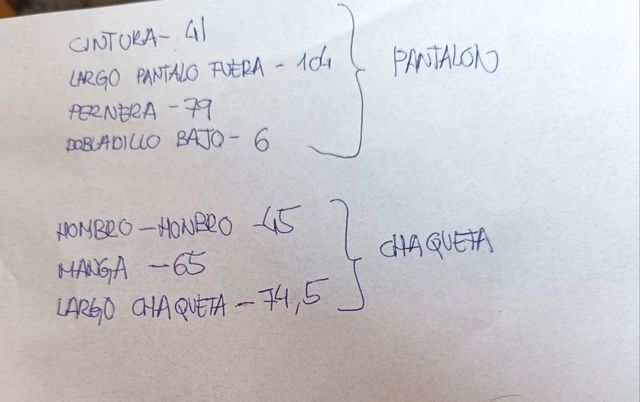 CINTURA - 41
LARGO PANTALO FUERA - 104
PERNERA - 79
DOBLADILLO BAJO - 6
PANTALON
HOMBRO - HOMBRO - 45
MANGA - 65
LARGO CHAQUETA - 74,5
CHAQUETA